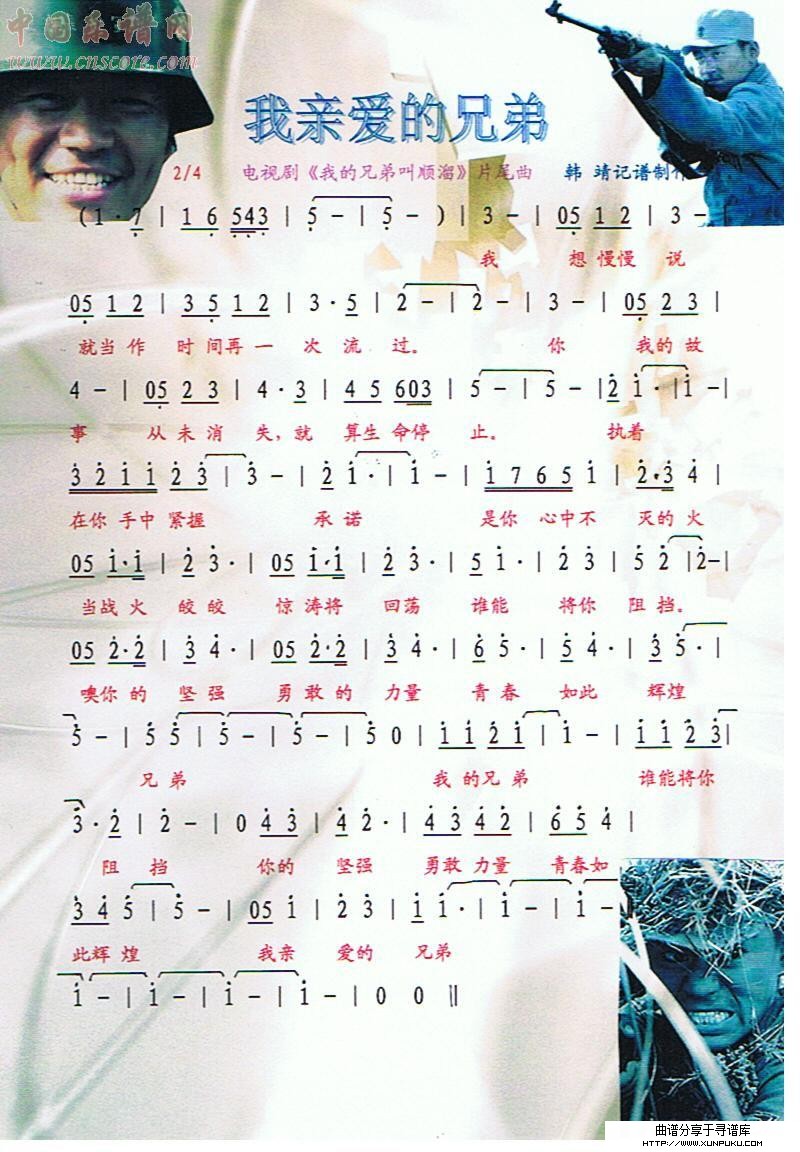 中国乐谱网
www.cnscore.com
我亲爱的兄弟
2/4 电视剧《我的兄弟叫顺溜》片尾曲 韩 靖记谱制作
(1 · 7 | 1 6 543 | 5 - | 5 - ) | 3 - | 05 1 2 | 3 - |
我 想 慢慢 说
05 1 2 | 3 5 1 2 | 3 · 5 | 2 - | 2 - | 3 - | 05 2 3 |
就当 作 时 间再 一 次 流 过。 你 我的 故
4 - | 05 2 3 | 4 · 3 | 4 5 603 | 5 - | 5 - | 2 i · | i - |
事 从 未 消 失, 就 算生 命停 止。 执着
3 2 i i 2 3 | 3 - | 2 i · | i - | i 7 6 5 i | 2 · 3 4 |
在你 手中 紧握 承 诺 是你 心中不 灭的 火
05 i · i | 2 3 · | 05 i · i | 2 3 · | 5 i · | 2 3 | 5 2 | 2 - |
当战 火 皎皎 惊 涛将 回荡 谁能 将你 阻 挡。
05 2 · 2 | 3 4 · | 05 2 · 2 | 3 4 · | 6 5 · | 5 4 · | 3 5 · |
噢你 的 坚 强 勇 敢 的 力量 青春 如此 辉煌
5 - | 5 5 | 5 - | 5 - | 5 0 | i i 2 i | i - | i i 2 3 |
兄 弟 我 的兄 弟 谁能将你
3 · 2 | 2 - | 0 4 3 | 4 2 · | 4 3 4 2 | 6 5 4 |
阻 挡 你的 坚强 勇敢 力量 青春如
3 4 5 | 5 - | 05 i | 2 3 | i i · | i - | i - |
此辉 煌 我亲 爱的 兄弟
i - | i - | i - | i - | i - | 0 0 ‖
曲谱分享于寻谱库
HTTP://WWW.XUNPUKU.COM